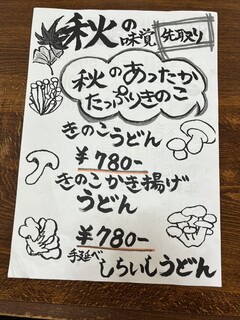 秋の味覚 先取り
秋のあったか
たっぷりきのこ
きのこうどん
¥780-
きのこかき揚げ
うどん
¥780-
手延べしらいしうどん